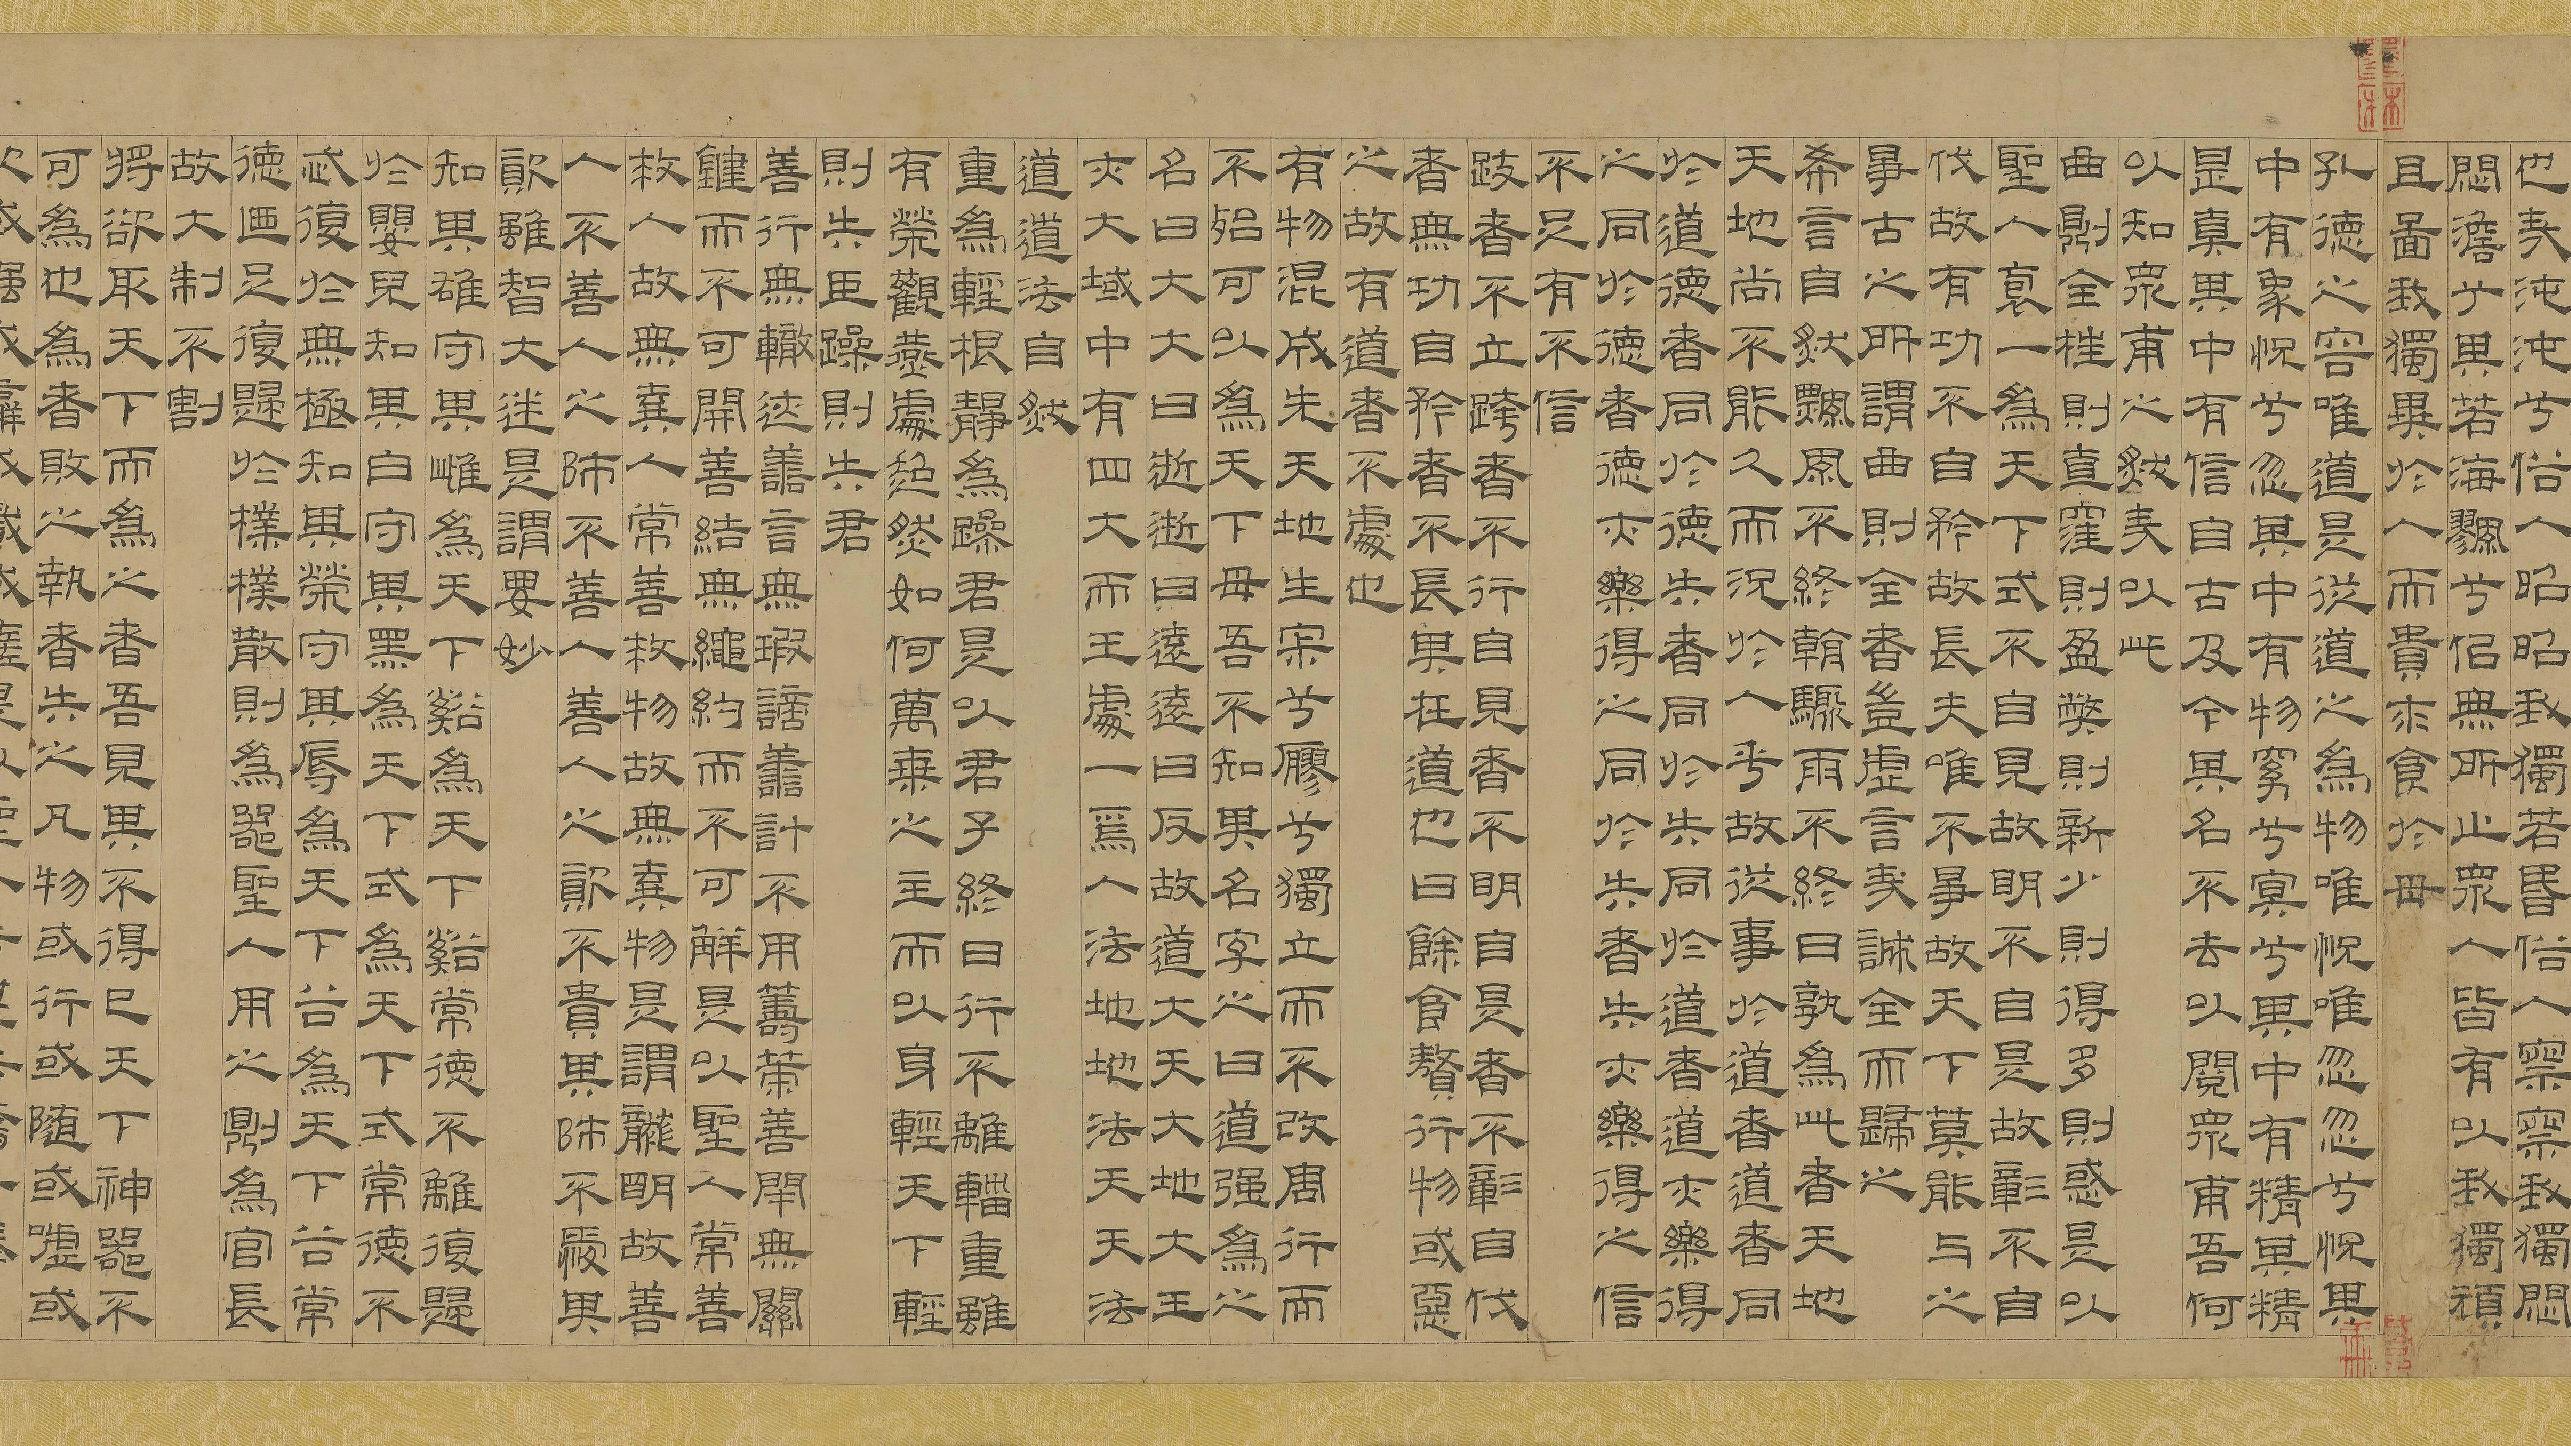 也哉沌沌兮俗人昭昭我獨若昬俗人察察我獨悶
悶澹兮其若海飂兮似無所止衆人皆有以我獨頑
且啚我獨異於人而貴求食於母
孔德之容唯道是從道之爲物唯怳唯忽忽兮怳其
中有象怳兮忽其中有物窈兮冥兮其中有精其精
是真其中有信自古及今其名不去以閱衆甫吾何
以知衆甫之然哉以此
曲則全枉則直窪則盈弊則新少則得多則惑是以
聖人裒一爲天下式不自見故明不自是故彰不自
伐故有功不自矜故長夫唯不爭故天下莫能与之
爭古之所謂曲則全者豈虛言哉誠全而歸之
希言自然飄風不終朝驟雨不終日孰爲此者天地
天地尚不能久而況於人乎故從事於道者道者同
於道德者同於德失者同於失同於道者道亦樂得
之同於德者德亦樂得之同於失者失亦樂得之信
不足有不信
跂者不立跨者不行自見者不明自是者不彰自伐
者無功自矜者不長其在道也曰餘食贅行物或惡
之故有道者不處也
有物混成先天地生寂兮寥兮獨立而不改周行而
不殆可以爲天下母吾不知其名字之曰道强爲之
名曰大大曰逝逝曰遠遠曰反故道大天大地大王
亦大域中有四大而王處一焉人法地地法天天法
道道法自然
重爲輕根靜爲躁君是以君子終日行不離輜重雖
有榮觀燕處超然如何萬乘之主而以身輕天下輕
則失臣躁則失君
善行無轍迹善言無瑕謫善計不用籌策善閉無關
鍵而不可開善結無繩約而不可解是以聖人常善
救人故無棄人常善救物故無棄物是謂襲明故善
人不善人之師不善人善人之資不貴其師不愛其
資雖智大迷是謂要妙
知其雄守其雌爲天下谿爲天下谿常德不離復歸
於嬰兒知其白守其黑爲天下式爲天下式常德不
忒復於無極知其榮守其辱爲天下谷爲天下谷常
德廼足復歸於樸樸散則爲器聖人用之則爲官長
故大制不割
將欲取天下而爲之者吾見其不得已天下神器不
可爲也爲者敗之執者失之凡物或行或随或噓或